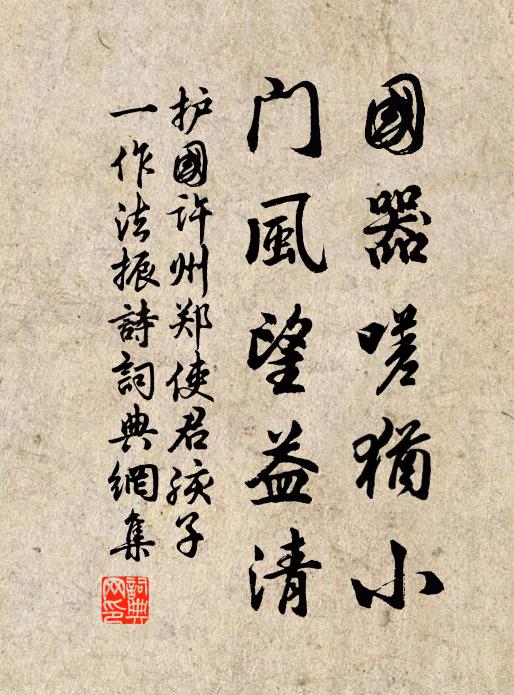 國器嗟猶小
門風望益清
护國许州郑使君孩子
一作法振詩詞典網集
詞典網印